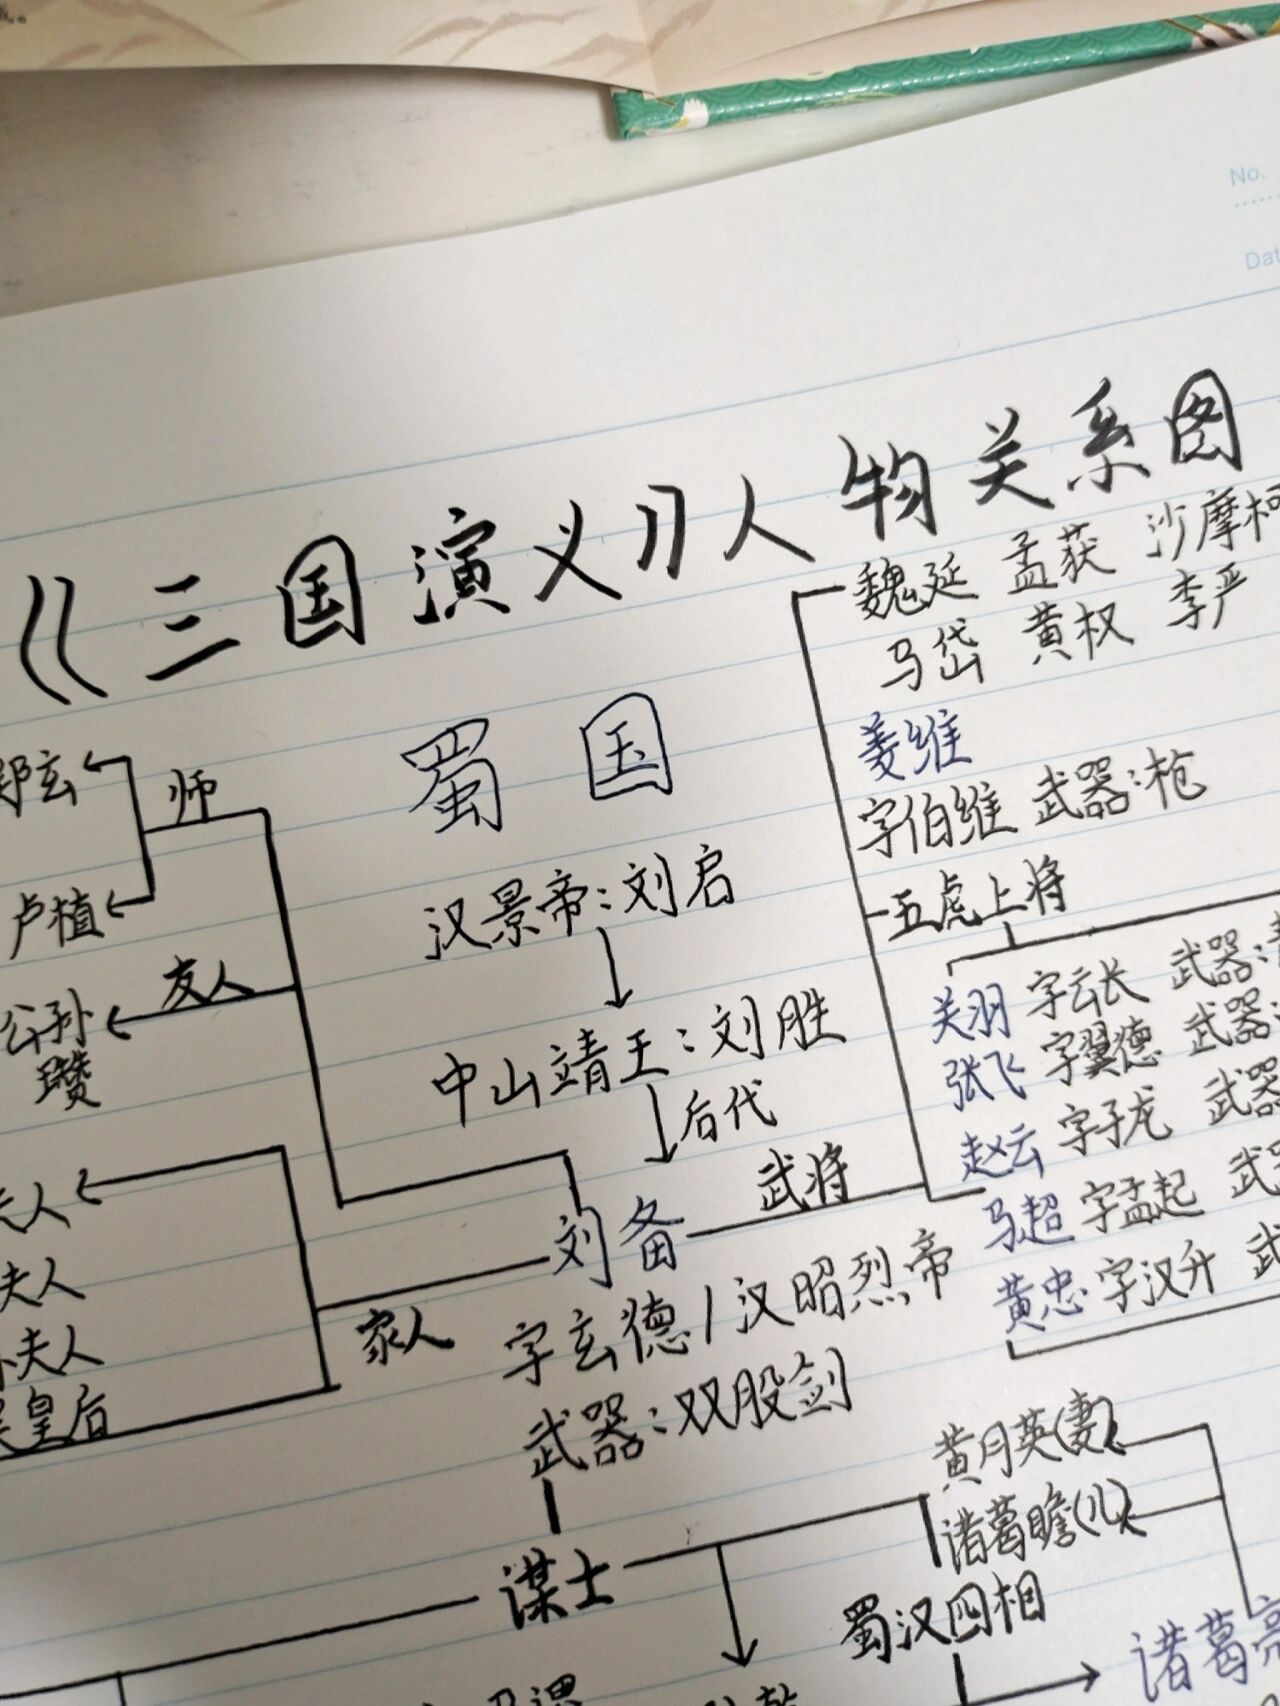 No.
《三国演义》人物关系图
蜀国
魏延 孟获 沙摩柯
马岱 黄权 李严
姜维
字伯维 武器:枪
五虎上将
关羽 字云长 武器:
张飞 字翼德 武器:
赵云 字子龙 武器
马超 字孟起 武
黄忠 字汉升 武
郑玄
师
卢植
友人
公孙
瓒
汉景帝:刘启
中山靖王:刘胜
后代
武将
刘备
字玄德/汉昭烈帝
武器:双股剑
家人
夫人
夫人
夫人
皇后
谋士
黄月英(妻)
诸葛瞻(儿)
蜀汉四相
诸葛亮